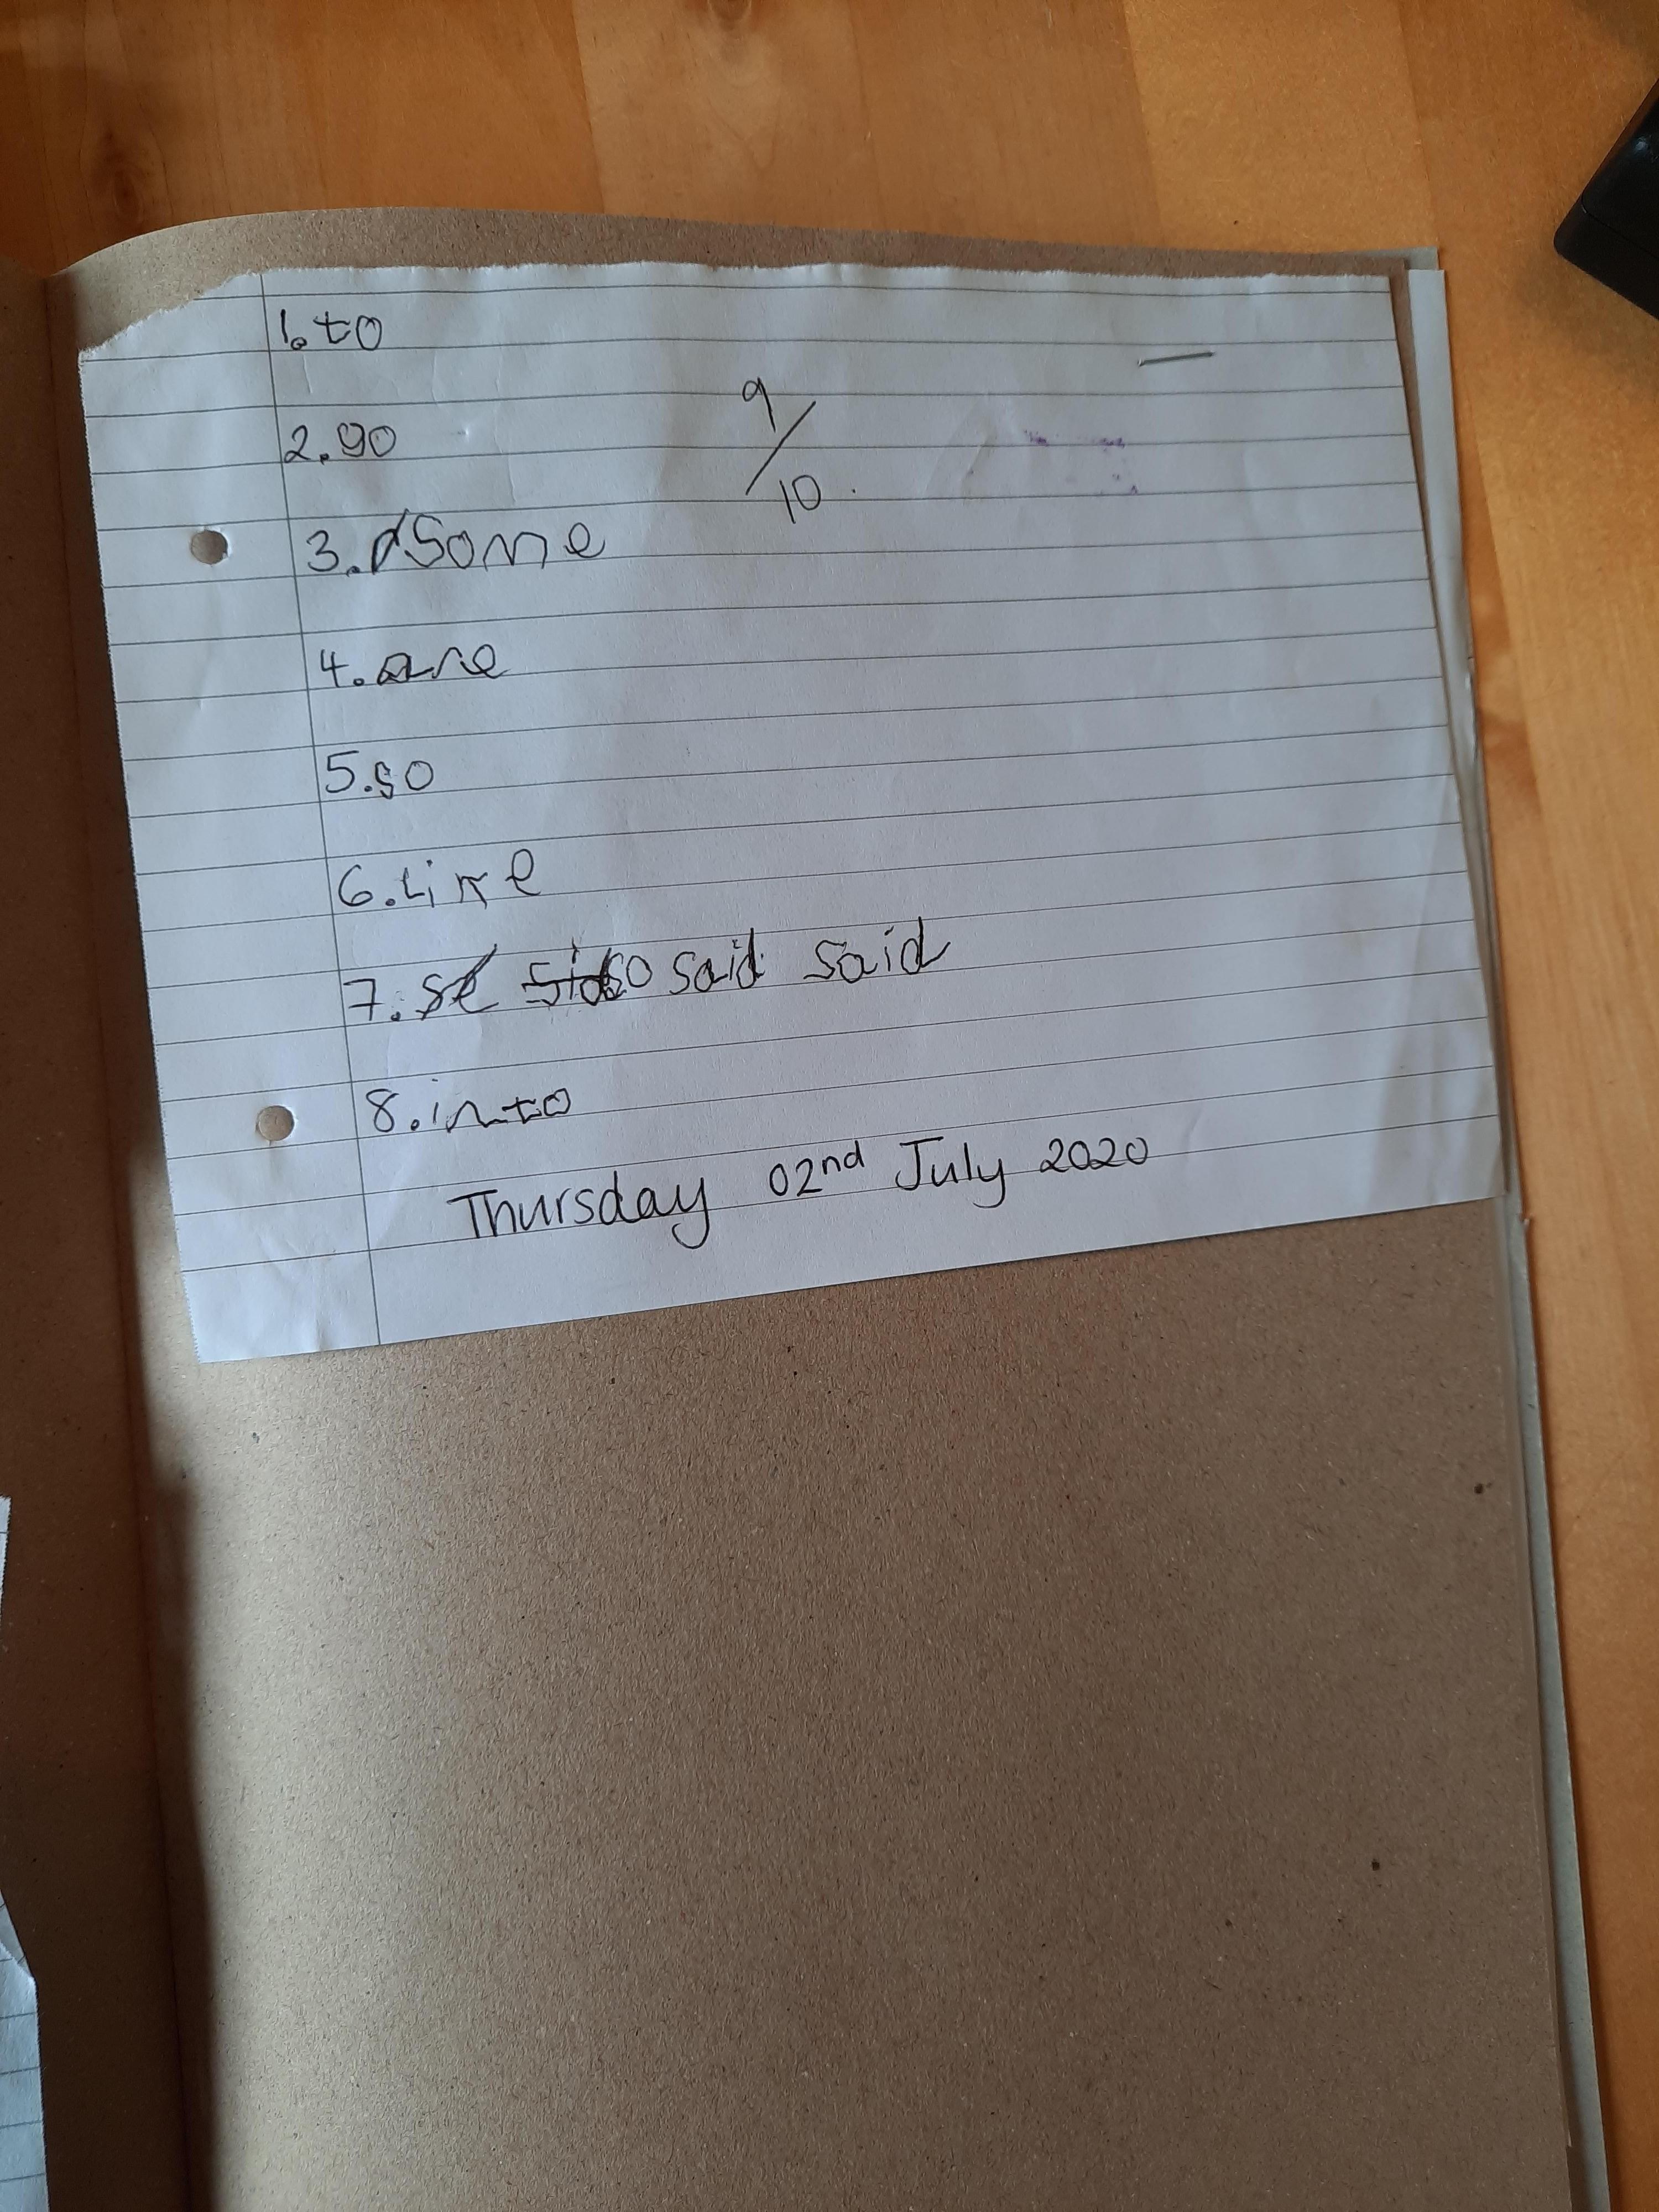 1. to
2. go
9/10
3. some
4. are
5. so
6. like
7. said said
8. into
Thursday 02nd July 2020